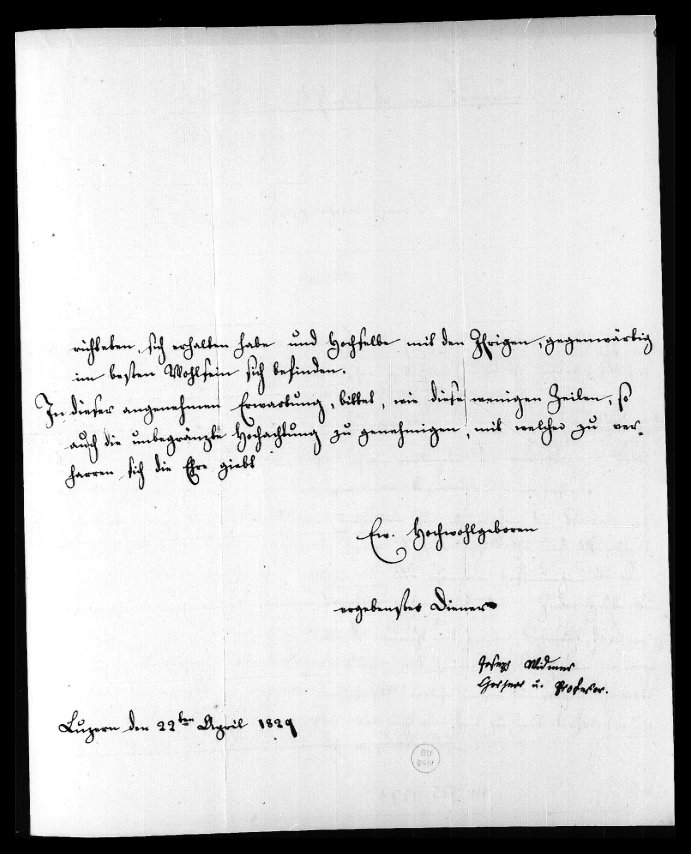 richteten, sich erhalten habe und Hochselbe mit den Ihrigen, gegenwärtig
im besten Wohlsein sich befinden.
In dieser angenehmen Erwartung, bittet, wie diese wenigen Zeilen, so
auch die unbegränzte Hochachtung zu genehmigen, mit welcher zu ver-
harren sich die Ehre giebt
Ew. Hochwohlgeboren
ergebenster Diener
Joseph Widmer
Chorherr u. Professor.
Luzern den 22ten April 1829
BU